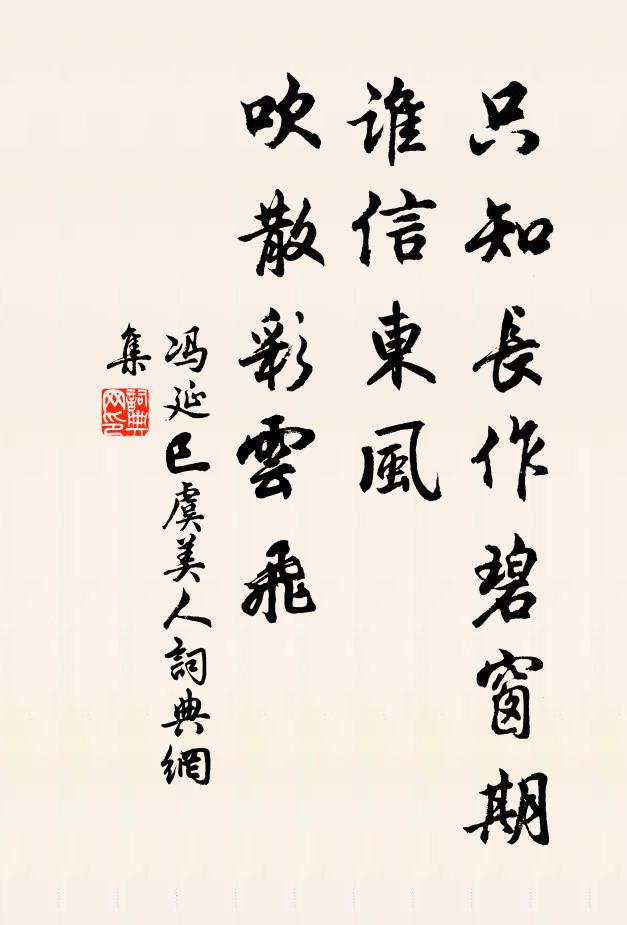 只知長作碧窗期
誰信東風
吹散彩雲飛
冯延巳虞美人詞典網
集
詞典
网印